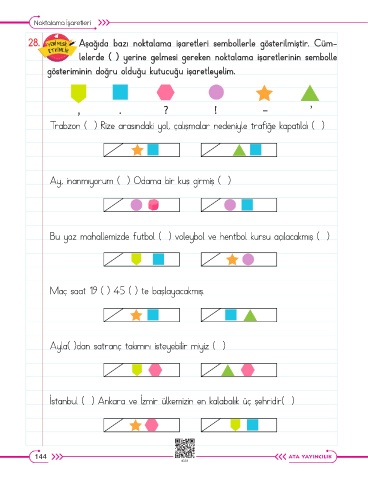 Noktalama İşaretleri
28.
Aşağıda bazı noktalama işaretleri sembollerle gösterilmiştir. Cüm-
lelerde ( ) yerine gelmesi gereken noktalama işaretlerinin sembolle
gösteriminin doğru olduğu kutucuğu işaretleyelim.
, . ? ! – ’
Trabzon ( ) Rize arasındaki yol, çalışmalar nedeniyle trafiğe kapatıldı ( )
Ay, inanmıyorum ( ) Odama bir kuş girmiş ( )
Bu yaz mahallemizde futbol ( ) voleybol ve hentbol kursu açılacakmış ( )
Maç saat 19 ( ) 45 ( ) te başlayacakmış.
Ayla( )dan satranç takımını isteyebilir miyiz ( )
İstanbul ( ) Ankara ve İzmir ülkemizin en kalabalık üç şehridir( )
144
ATA YAYINCILIK